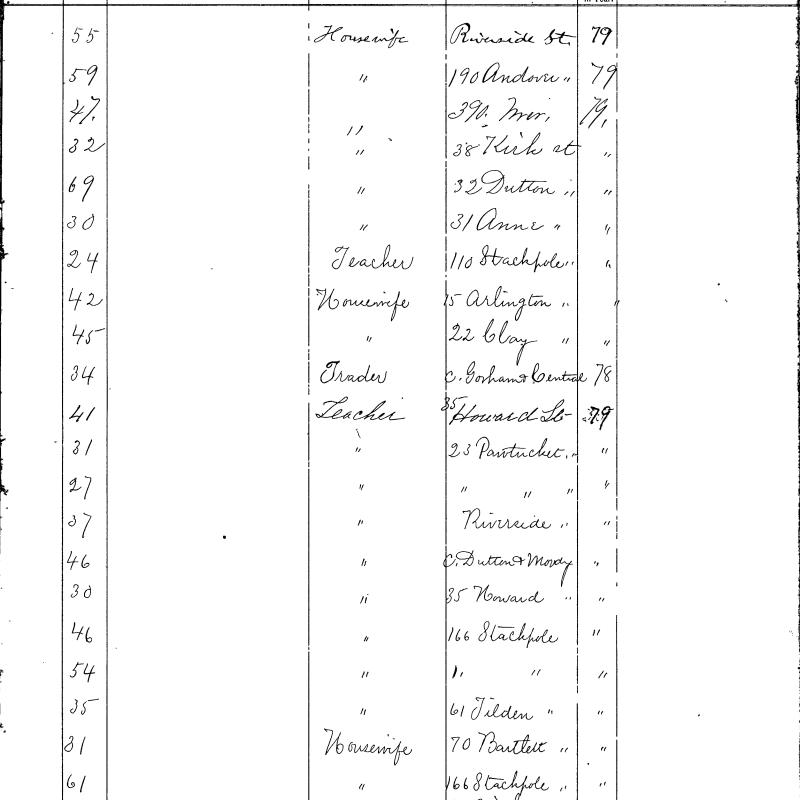 55 Housewife Riverside St. 79
59 " 190 Andover " 79
47. " 390. Mer. 79.
32 " 38 Kirk st "
69 " 32 Dutton " "
30 " 31 Anne " "
24 Teacher 110 Stackpole " "
42 Housewife 15 Arlington " "
45 " 22 Clay " "
34 Trader c. Gorham & Central 78
41 Teacher 35 Howard St 79
31 " 23 Pawtucket " "
27 " " " " "
37 " Riverside " "
46 " C. Dutton & Moody "
30 " 35 Howard " "
46 " 166 Stackpole "
54 " " " "
35 " 61 Tilden " "
31 Housewife 70 Bartlett " "
61 " 166 Stackpole " "